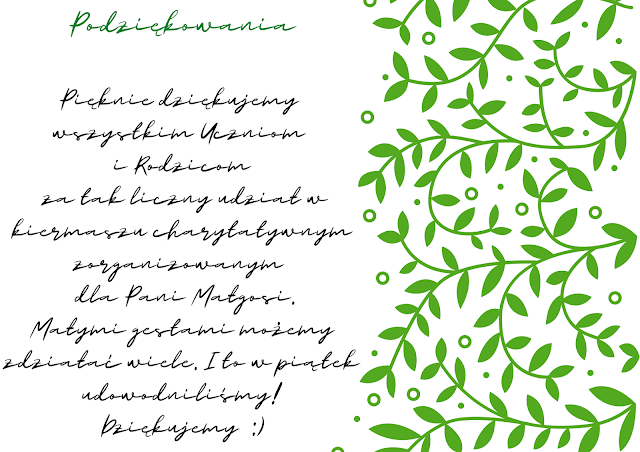 Podziękowania
Pięknie dziękujemy
wszystkim Uczniom
i Rodzicom
za tak liczny udział w
kiermaszu charytatywnym
zorganizowanym
dla Pani Małgosi.
Małymi gestami możemy
zdziałać wiele. I to w piątek
udowodniliśmy!
Dziękujemy :)